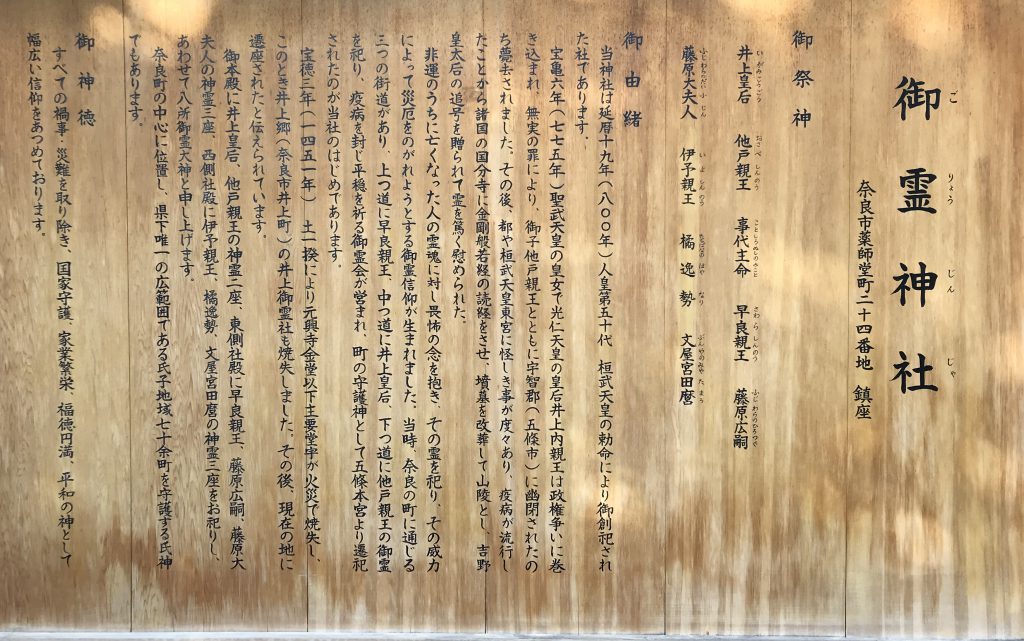 御霊神社
ご りょう じん じゃ
奈良市薬師堂町二十四番地 鎮座
御祭神
井上皇后 他戸親王 事代主命 早良親王 藤原広嗣
いがみこうごう おさべしんのう ことしろぬしのみこと さわらしんのう ふじわらのひろつぐ
藤原大夫人 伊予親王 橘逸勢 文屋宮田麿
ふじわらだいふじん いよしんのう たちばなのはやなり ぶんやのみやたまろ
御由緒
当神社は延暦十九年(八〇〇年)人皇第五十代 桓武天皇の勅命により御創祀され
た社であります。
宝亀六年(七七五年)聖武天皇の皇女で光仁天皇の皇后井上内親王は政権争いに巻
き込まれ、無実の罪により、御子他戸親王とともに宇智郡(五條市)に幽閉されたの
ち薨去されました。その後、都や桓武天皇東宮に怪しき事が度々あり、疫病が流行し
たことから諸国の国分寺に金剛般若経の読経をさせ、墳墓を改葬して山陵とし、吉野
皇太后の追号を贈られて霊を篤く慰められた。
非運のうちに亡くなった人の霊魂に対し畏怖の念を抱き、その霊を祀り、その威力
によって災厄をのがれようとする御霊信仰が生まれました。当時、奈良の町に通じる
三つの街道があり、上つ道に早良親王、中つ道に井上皇后、下つ道に他戸親王の御霊
を祀り、疫病を封じ平穏を祈る御霊会が営まれ、町の守護神として五條本宮より遷祀
されたのが当社のはじめであります。
宝徳三年(一四五一年) 土一揆により元興寺金堂以下主要堂宇が火災で焼失し、
このとき井上郷(奈良市井上町)の井上御霊社も焼失しました。その後、現在の地に
遷座されたと伝えられています。
御本殿に井上皇后、他戸親王の神霊二座、東側社殿に早良親王、藤原広嗣、藤原大
夫人の神霊三座、西側社殿に伊予親王、橘逸勢、文屋宮田麿の神霊三座をお祀りし、
あわせて八所御霊大神と申し上げます。
奈良町の中心に位置し、県下唯一の広範囲である氏子地域七十余町を守護する氏神
でもあります。
御神徳
すべての禍事・災難を取り除き、国家守護、家業繁栄、福徳円満、平和の神として
幅広い信仰をあつめております。